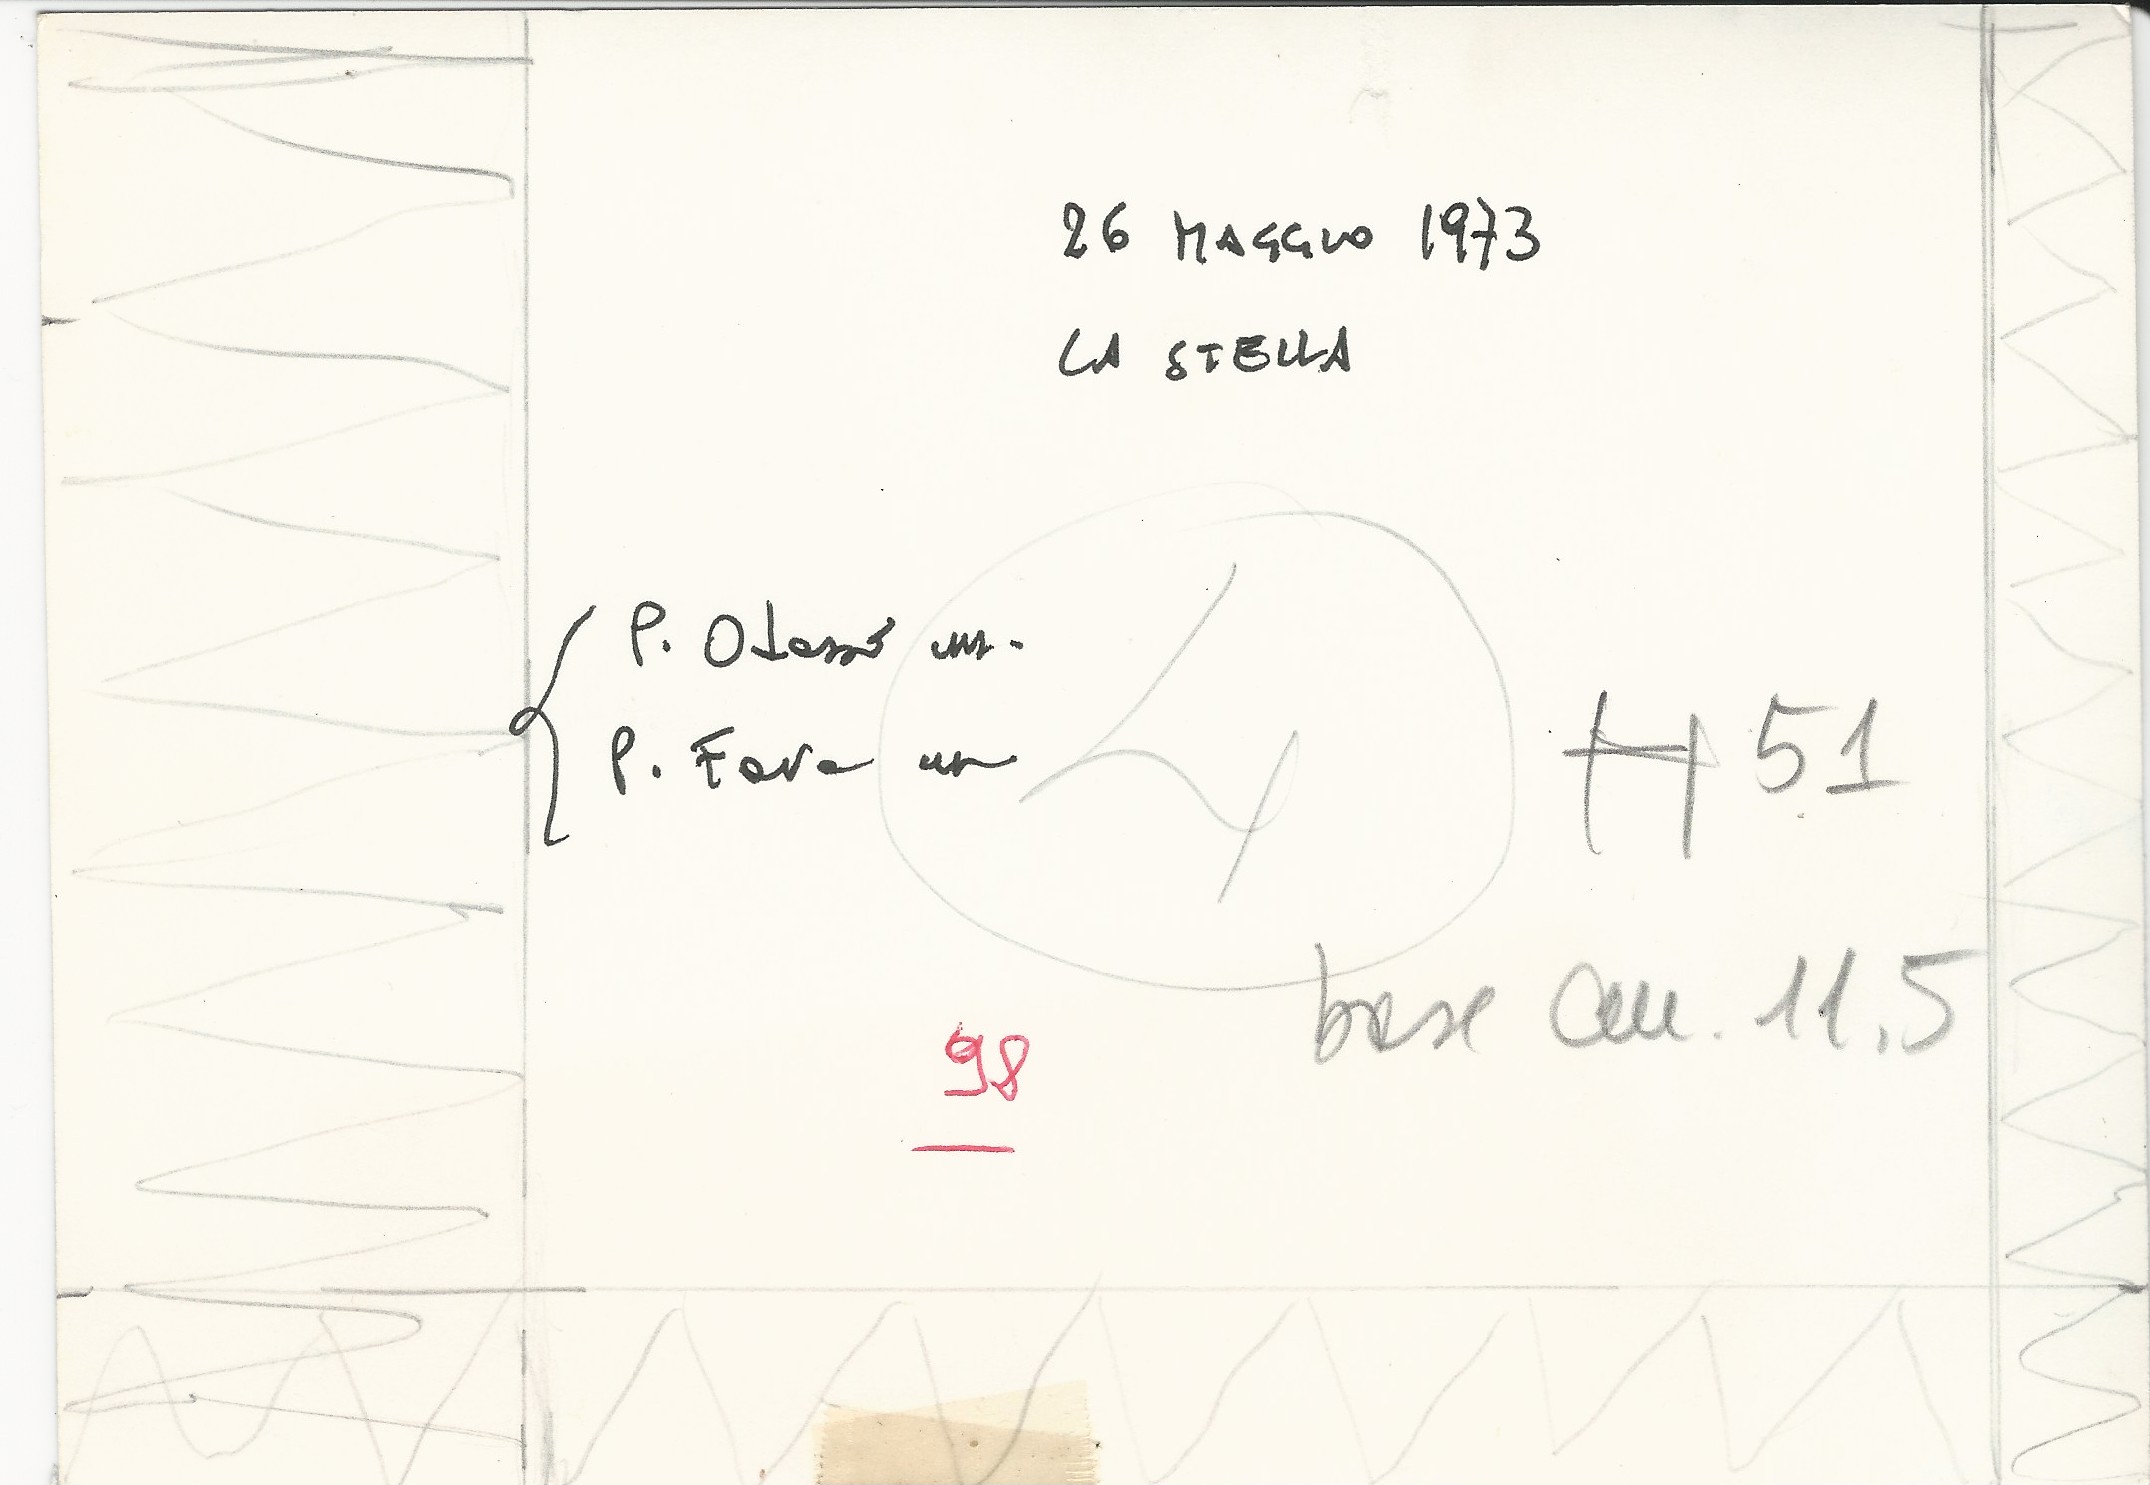 26 MAGGIO 1973
LA STELLA
P.
P. Fava
4
H 51
base cm. 11,5
98